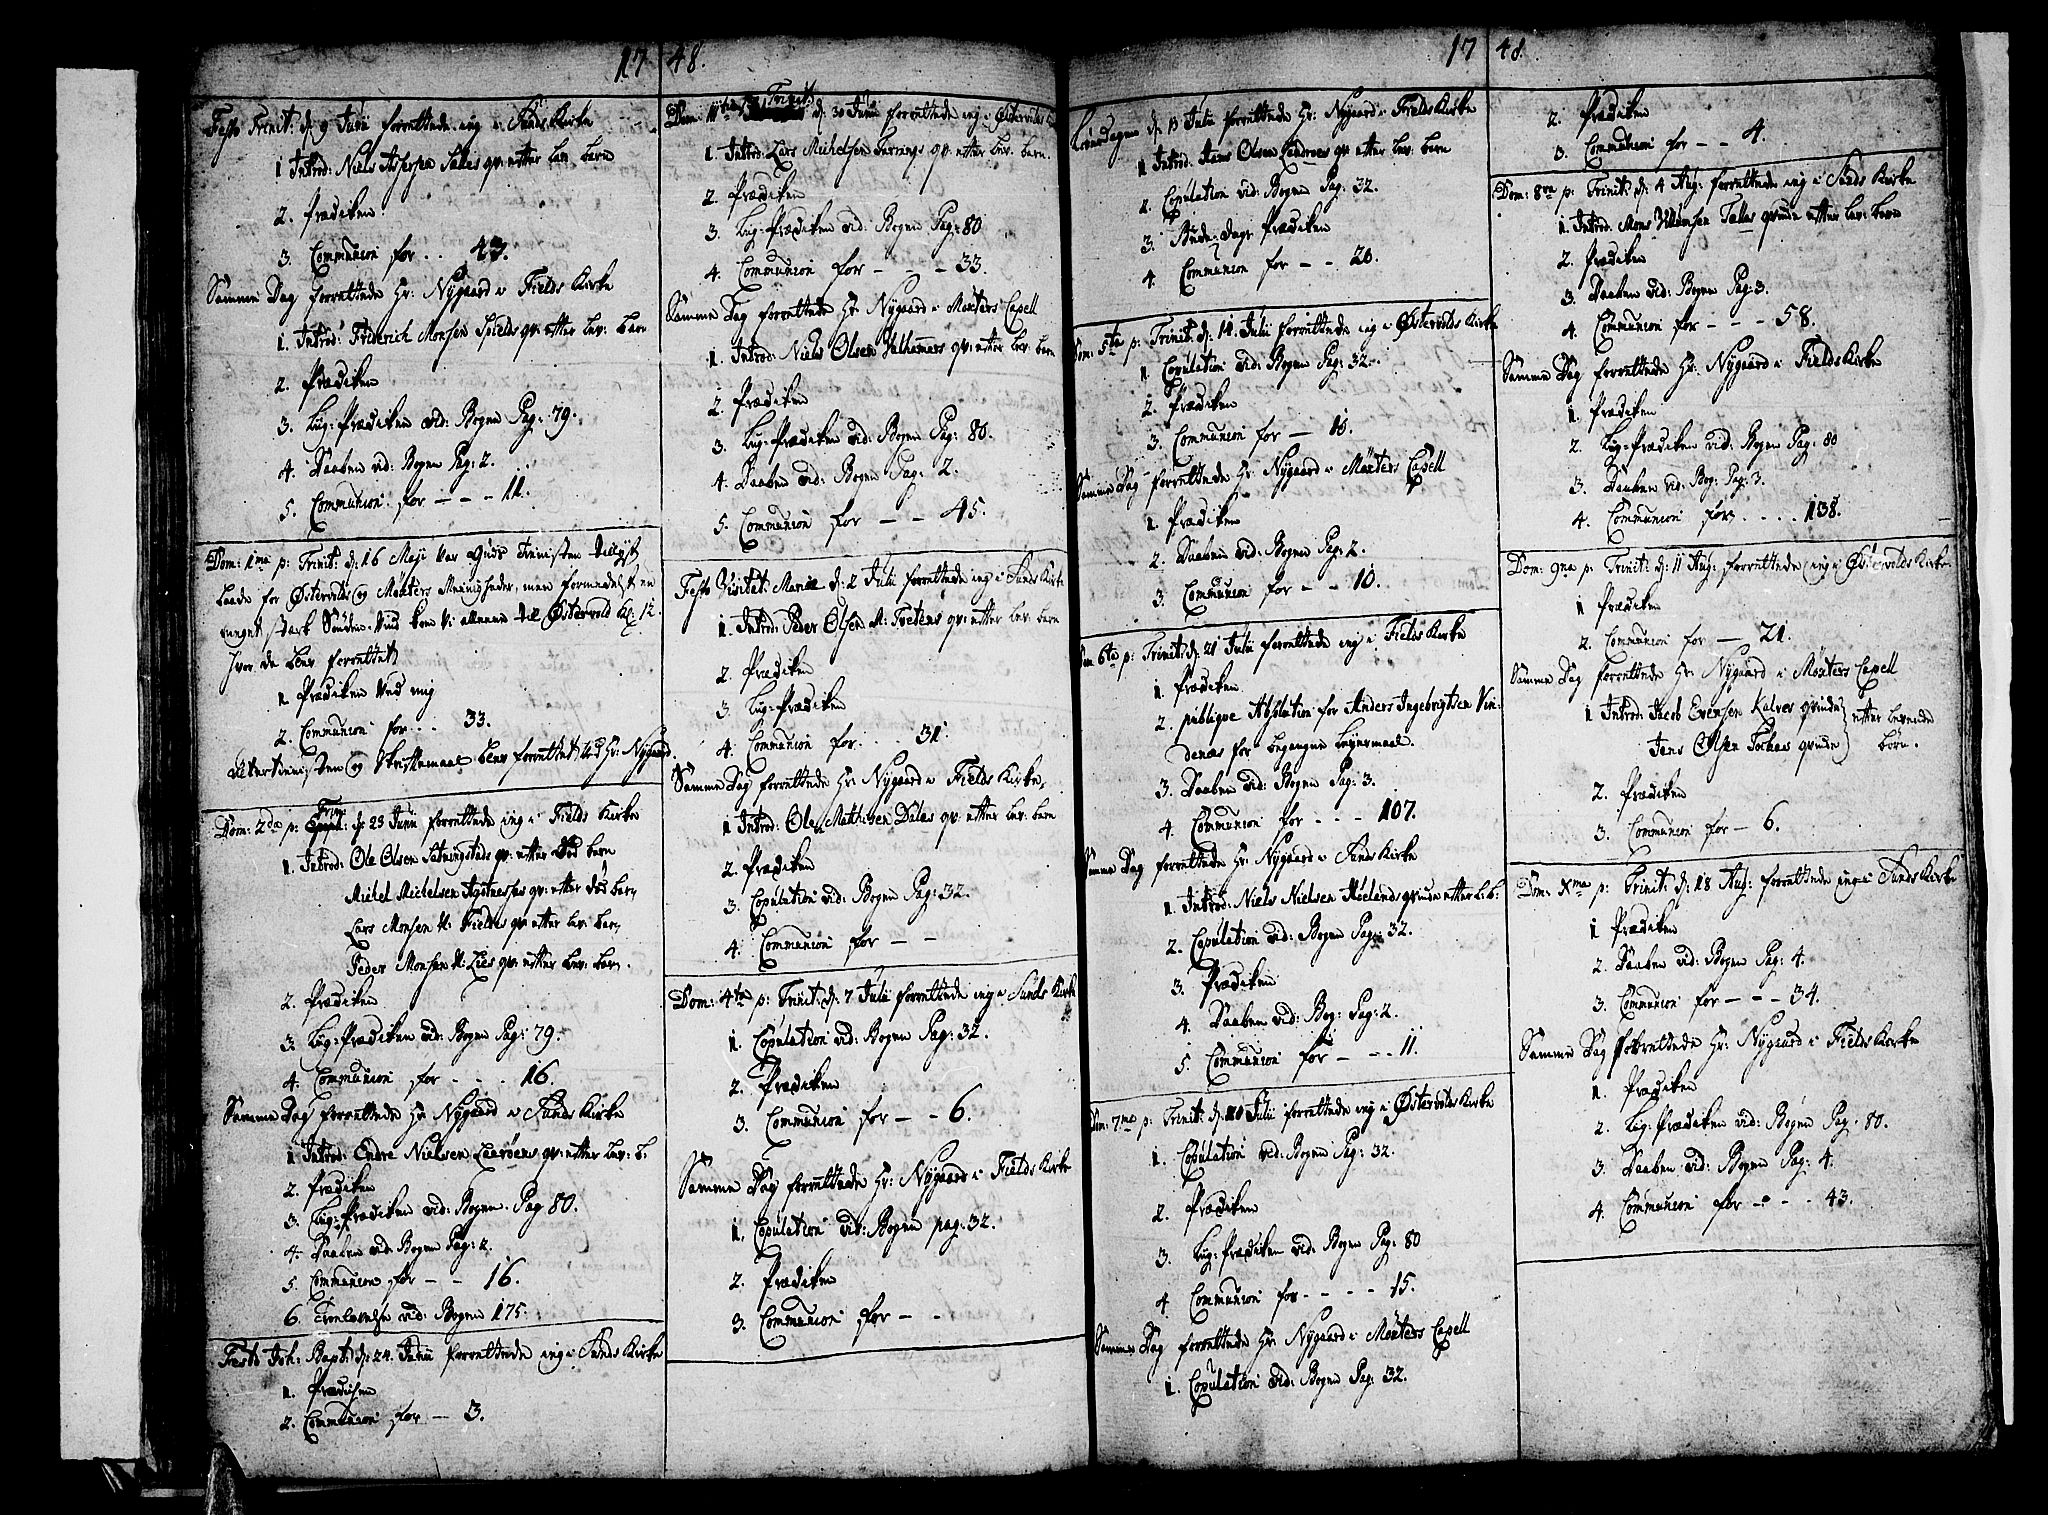 17 48.
Festo Trinit: d: 9 Junii forrettede ieg i Sunds Kirke
1 Introd: Niels qv: efter lev: barn
2. Prædiken
3. Communion for . . 43.
Samme Dag forrettede Hr: Nygaard i Fields Kirke
1. Introd: Friderich Monsen qv: efter lev: barn
2. Prædiken
3. Liig-Prædiken vid: Bogen Pag: 79.
4. Daaben vid: Bogen Pag: 2.
5. Communion for - - - 11.
Dom: 1ma p: Trinit: d: 16 var Guds Tienisten
baade for Østervolds og Møxters Meenigheder, men formedelst en
stærk Sønden-Vind kom vi allene til Østervold Kl: 12.
hvor da blev forrettet
1. Prædiken ved mig
2. Communion for . . . 33.
og Skriftemaal blev forrettet ved Hr: Nygaard.
Dom: 2da p: Trin: d: 23 Junii forrettede ieg i Fields Kirke
1. Introd: Ole Olsen qv: efter død barn
Michel Michelsen qv: efter død barn
Lars Monsen qv: efter lev: barn
Peder Monsen qv: efter lev: barn.
2. Prædiken
3. Liig-Prædiken vid: Bogen Pag: 79.
4. Communion for . . . 16.
Samme Dag forrettede Hr Nygaard i Sunds Kirke
1 Introd: Endre Nielsen qv: efter lev: b:
2. Prædiken
3. Liig-Prædiken vid: Bogen Pag 80.
4. Daaben vid: Bogen Pag: 2.
5. Communion for - - 16.
6. Trolovelse vid: Bogen 175.
Festo Joh: Bapt: d: 24. Junii forrettede ieg i Sunds Kirke
1. Prædiken
2. Communion for - 3.
Dom: Trinit: d: 30 Junii forrettede ieg i Østervolds
1. Introd: Lars Michelsen qv: efter lev: barn.
2. Prædiken
3. Liig-Prædiken vid: Bogen Pag: 80
4. Communion for - - - 33.
Samme Dag forrettede Hr Nygaard i Møxters Capell
1. Introd: Niels Olsen qv: efter lev: barn
2. Prædiken
3. Liig-Prædiken vid: Bogen Pag: 80.
4. Daaben vid: Bogen Pag: 2.
5. Communion for - - 45.
Festo Visitat: Mariæ d: 2 Julii forrettede ieg i Sunds Kirke
1. Introd: Peder Olsen qv: efter lev: barn
2. Prædiken
3. Liig-Prædiken
4. Communion for . . . 31.
Samme Dag forrettede Hr: Nygaard i Fields Kirke,
1 Introd: Ole Mathisen Dales qv: efter lev: barn
2. Prædiken
3. Copulation vid: Bogen Pag: 32.
4. Communion for - -
Dom: 4ta p: Trinit: d: 7 Julii forrettede ieg i Sunds Kirke
1. Copulation vid: Bogen Pag: 32.
2. Prædiken
3. Communion for - - 6.
Samme Dag forrettede Hr: Nygaard i Fields Kirke
1. Copulation vid: Bogen pag: 32.
2. Prædiken
3. Communion for - -
17 48.
d: 13 Julii forrettede Hr: Nygaard i Fields Kirke
1 Introd. Hans Olsen qv: efter lev: barn
2. Copulation vid: Bogen Pag: 32.
3. Prædiken
4. Communion for - - 20.
Dom: 5ta p: Trinit: d: 14. Julii forrettede ieg i Østervolds Kirke
1. Copulation vid: Bogen Pag: 32.
2. Prædiken
3. Communion for - 10.
Samme Dag forrettede Hr: Nygaard i Møxters Capell
1. Prædiken
2. Daaben vid: Bogen Pag: 2.
3. Communion for - - 10.
Dom 6ta p: Trinit: d: 21 Julii forrettede ieg i Fields Kirke
1. Prædiken
2. publique Absolution for Anders Ingebrigtsen Vin-
denæs for begangne Leyermaal.
3. Daaben vid: Bogen Pag: 3.
4. Communion for - - - 107.
Samme Dag forrettede Hr: Nygaard i Sunds Kirke
1. Introd: Niels Nielsen qvinde efter l: b:
2. Copulation vid: Bogen Pag: 32.
3. Prædiken
4. Daaben vid: Bog: Pag: 2.
5. Communion for - - - 11.
Dom: 7ma p: Trinit: d: Julii forrettede ieg i Østervolds Kirke
1. Copulation vid: Bogen Pag: 32.
2. Prædiken
3. Liig-Prædiken vid: Bogen Pag: 80
4 Communion for - - - - 15.
Samme Dag forrettede Hr: Nygaard i Møxters Capell
1. Copulation vid: Bogen Pag: 32.
2. Prædiken
3. Communion for - - 4.
Dom: 8va p: Trinit: d: 4 Aug: forrettede ieg i Sunds Kirke
1. Introd: Mons qvinde efter lev: barn
2. Prædiken
3. Daaben vid: Bogen Pag: 3.
4. Communion for - - - 58.
Samme Dag forrettede Hr: Nygaard i Fields Kirke
1. Prædiken
2. Liig-Prædiken vid: Bogen Pag: 80
3. Daaben vid: Bog: Pag: 3.
4. Communion for . . . . 138.
Dom: 9na p: Trinit: d: 11 Aug: forrettede ieg i Østervolds Kirke
1 Prædiken
2. Communion for - 21.
Samme Dag forrettede Hr: Nygaard i Møxters Capell
1 Introd: Jacob Evensen Kalves qvinde } efter levende
Jens Olsen qvinde } børn.
2. Prædiken
3. Communion for - 6.
Dom: Xma p: Trinit: d: 18 Aug: forrettede ieg i Sunds Kirke
1 Prædiken
2. Daaben vid: Bogen Pag: 4.
3. Communion for - - - 34.
Samme Dag forrettede Hr: Nygaard i Fields Kirke
1. Prædiken
2. Liig-Prædiken vid: Bogen Pag: 80.
3. Daaben vid: Bogen Pag: 4.
4. Communion for - - - 43.